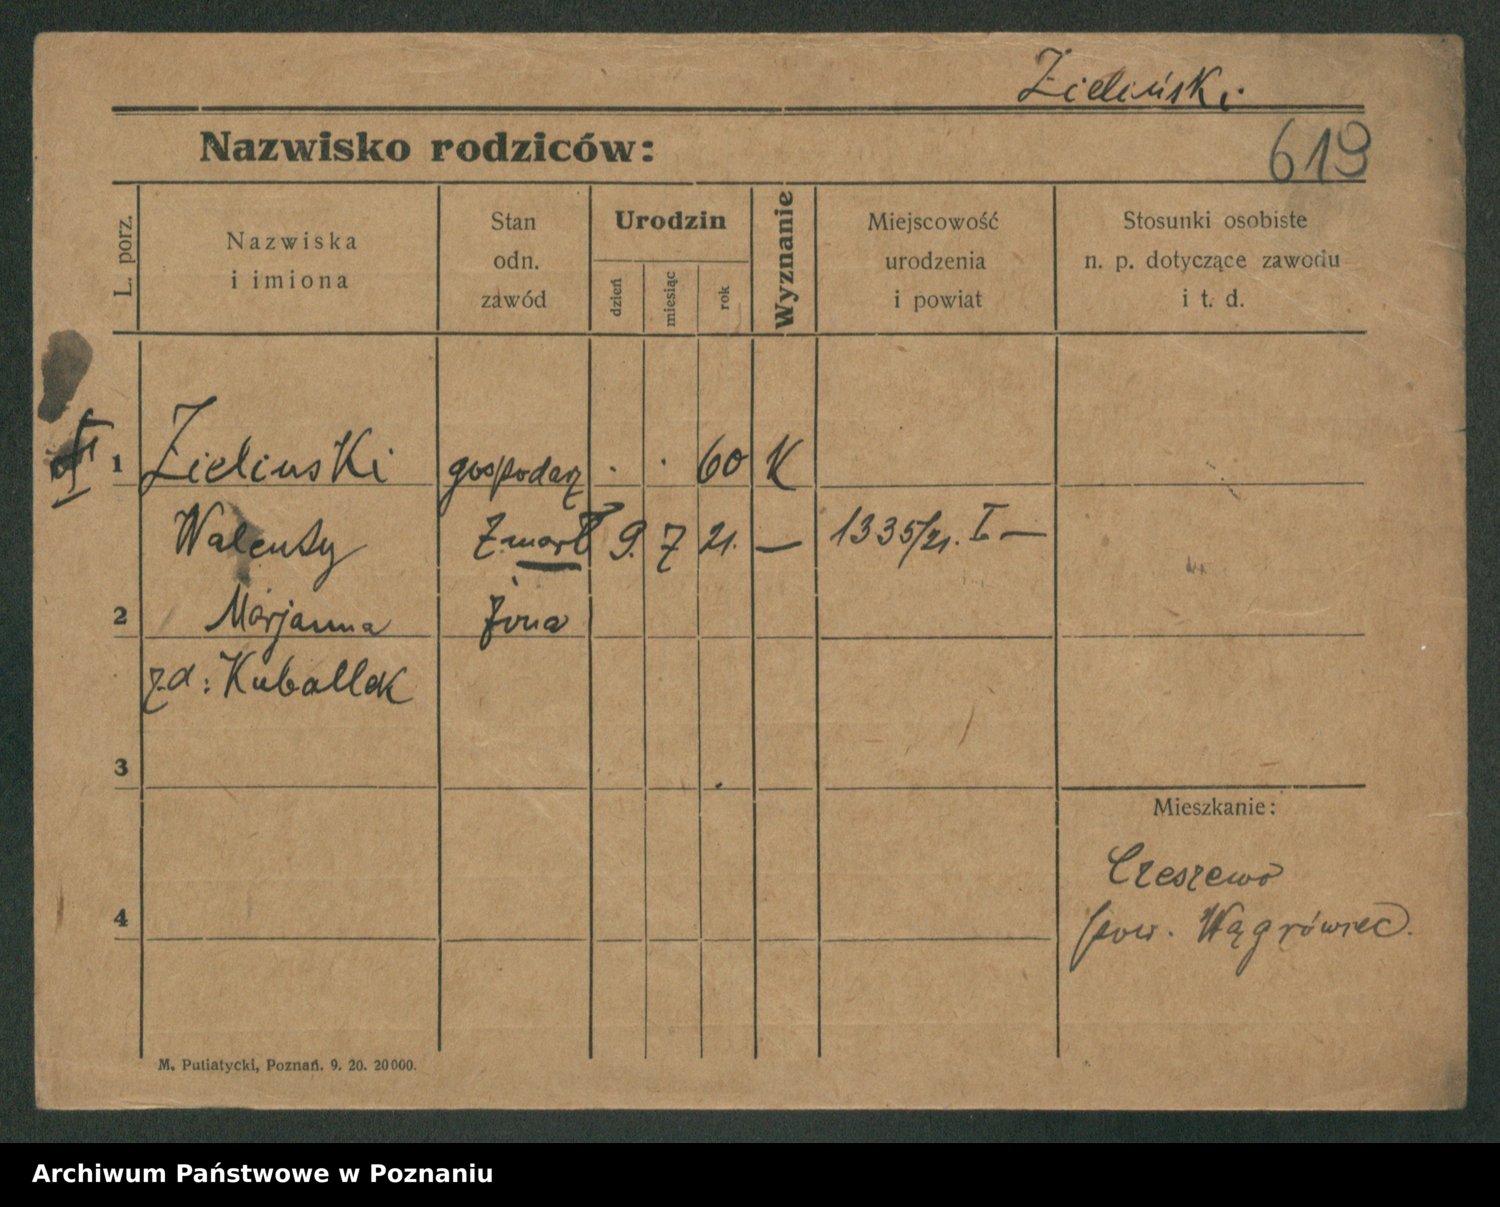 Zieliński
Nazwisko rodziców:
619
L. porz.
Nazwiska
i imiona
Stan
odn.
zawód
Urodzin
dzień
miesiąc
rok
Wyznanie
Miejscowość
urodzenia
i powiat
Stosunki osobiste
n. p. dotyczące zawodu
i t. d.
1 Zielinski gospodarz . . 60 K
Walenty Zmarł 9. 7 21. — 1335/21. I —
2 Marjanna żona
zd: Kuballak
3
Mieszkanie:
Czeszewo
4
pow. Wągrówiec.
M. Putiatycki, Poznań. 9. 20. 20000.
Archiwum Państwowe w Poznaniu